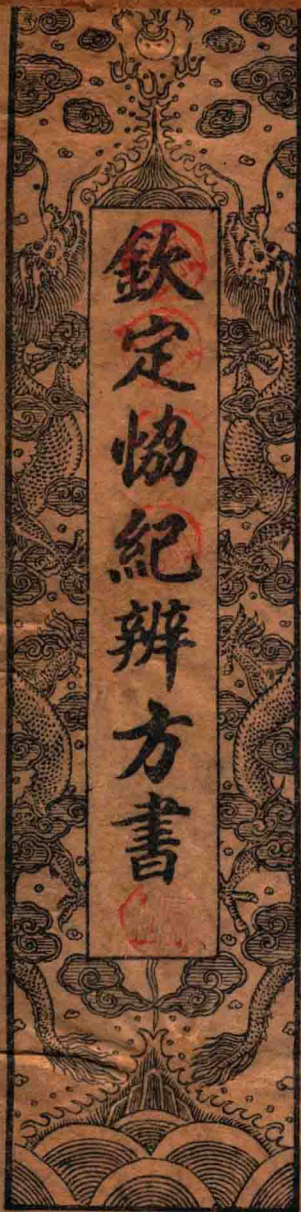 欽定恊紀辨方書